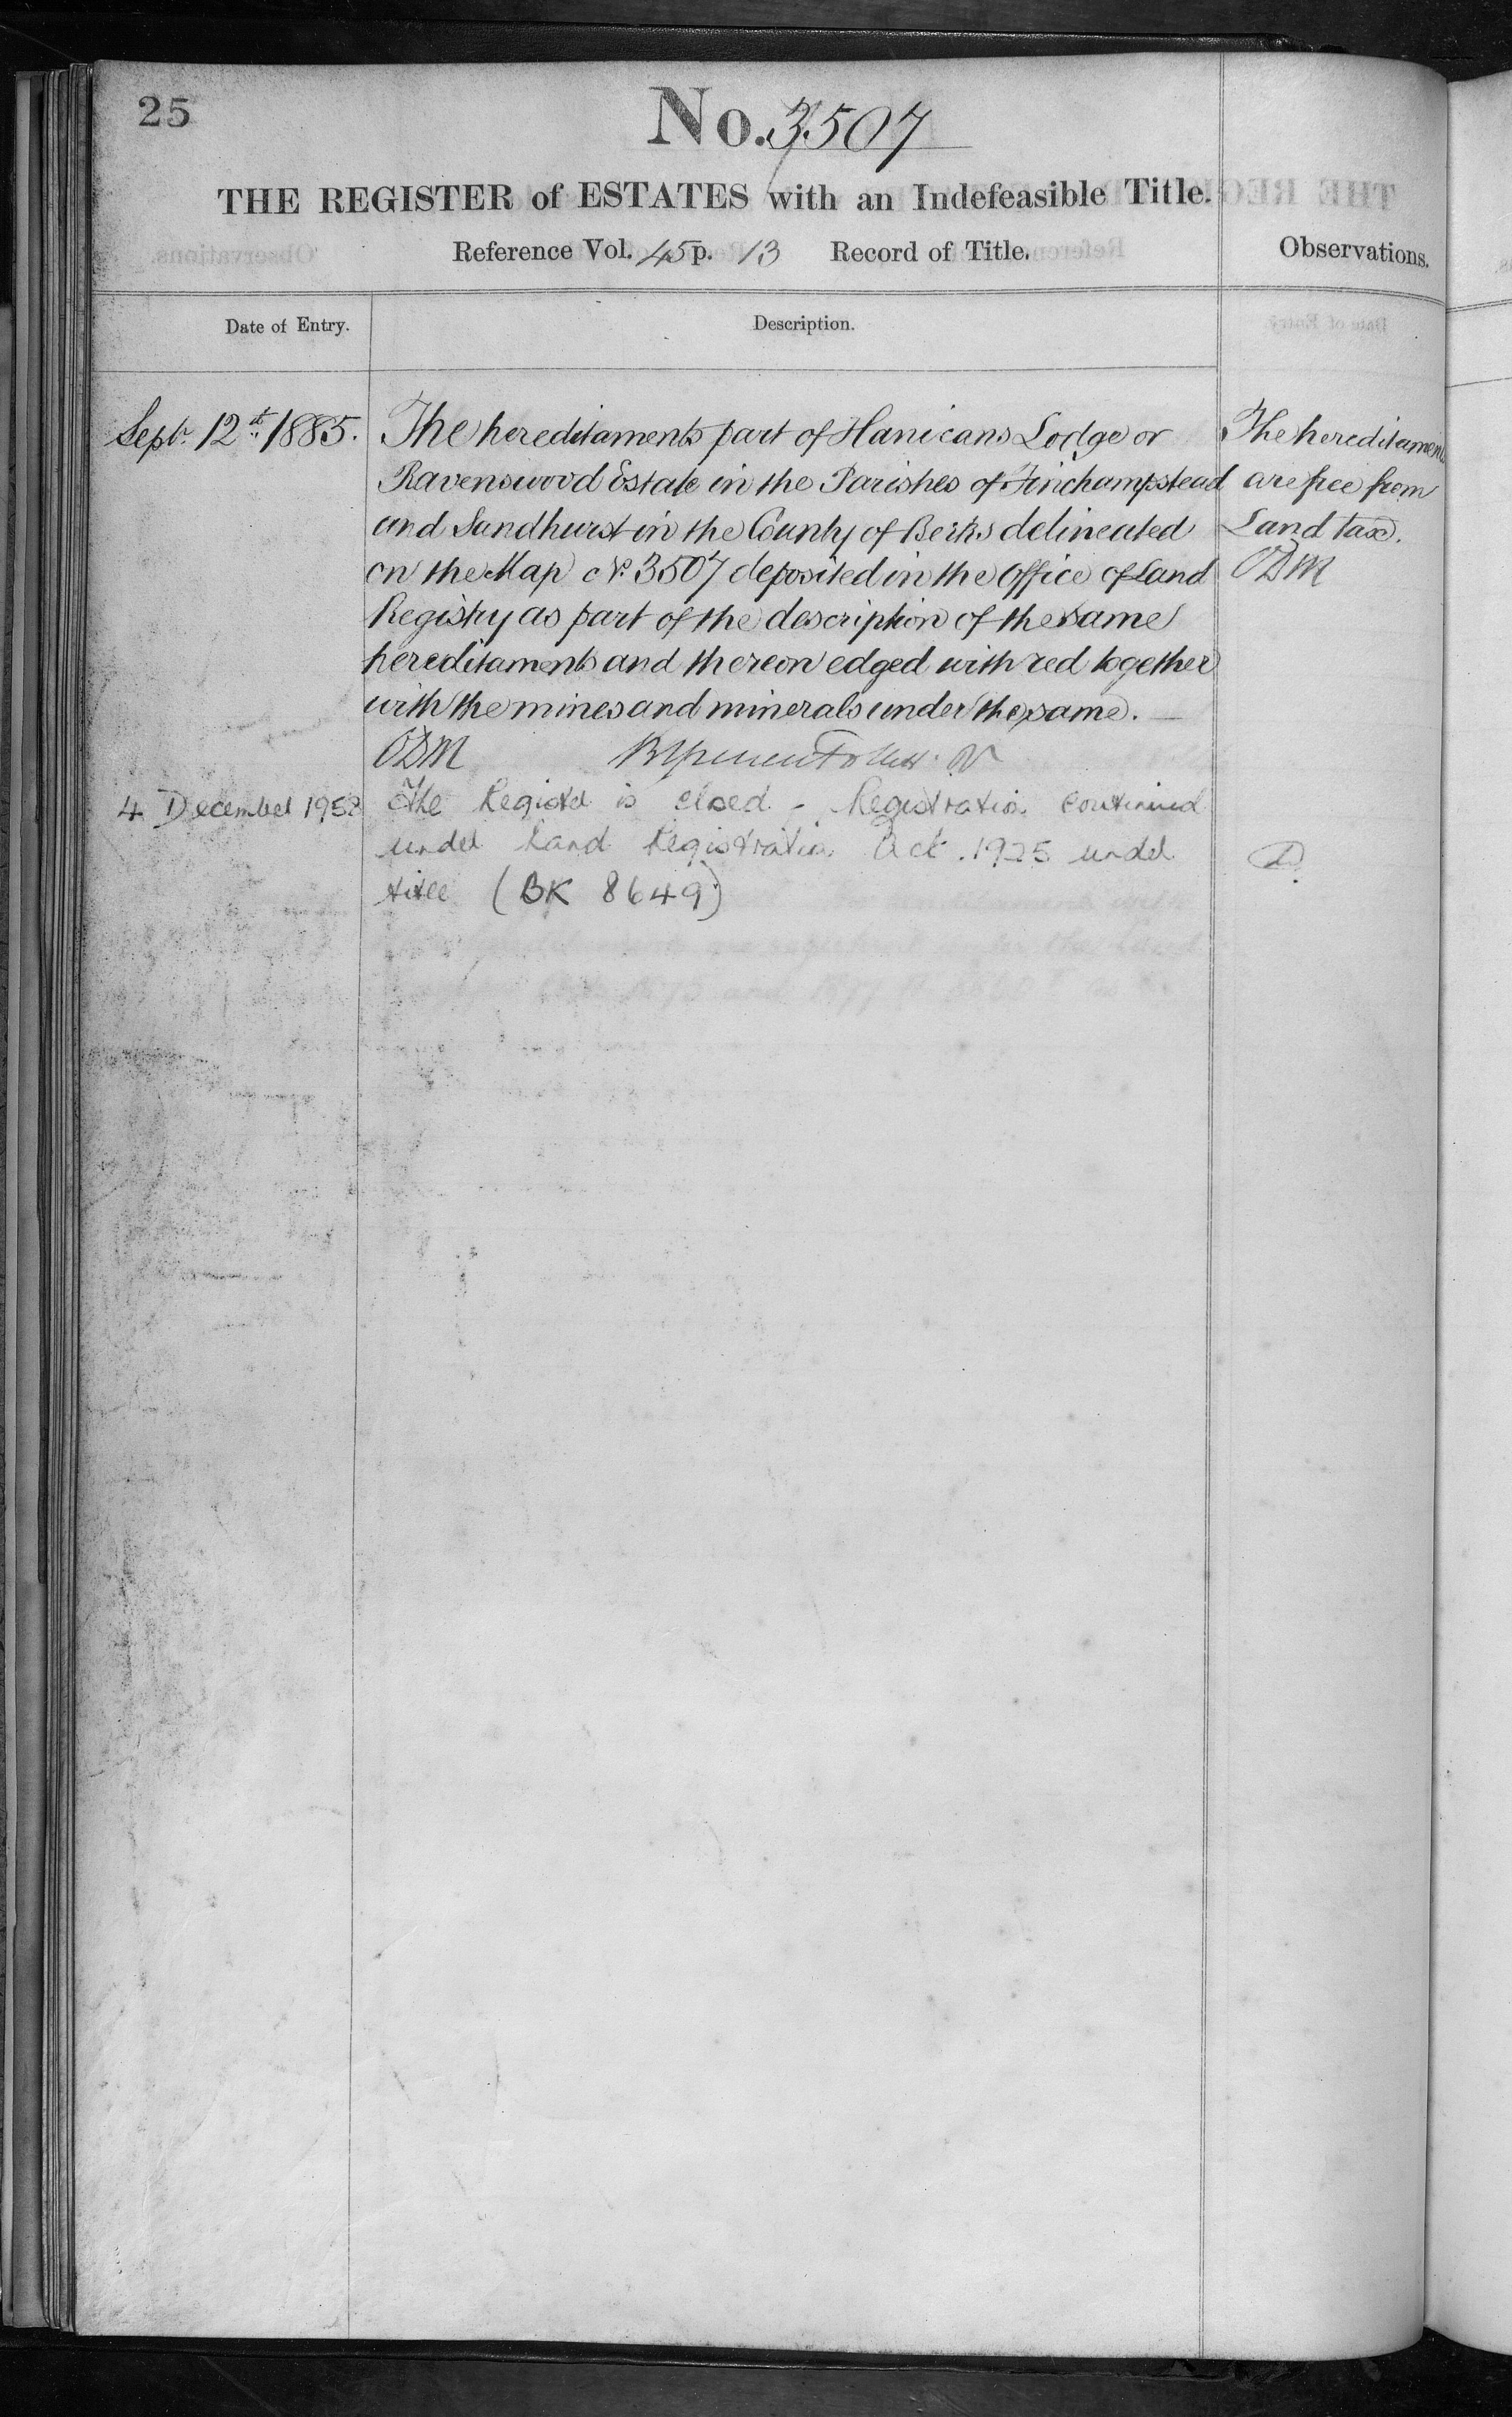 25
No. 3507
THE REGISTER of ESTATES with an Indefeasible Title.
Reference Vol. 45 p. 13 Record of Title.
Observations.
Date of Entry.
Description.
Sept. 12th 1885.
The hereditaments part of Hanicans Lodge or
Ravenswood Estate in the Parishes of Finchampstead
and Sandhurst in the County of Berks delineated
on the Map No. 3507 deposited in the Office of Land
Registry as part of the description of the same
hereditaments and thereon edged with red together
with the mines and minerals under the same.
ODM
The hereditaments
are free from
Land tax.
ODM
4 December 1958
The Register is closed - Registration continued
under Land Registration Act. 1925 under
title (BK 8649)